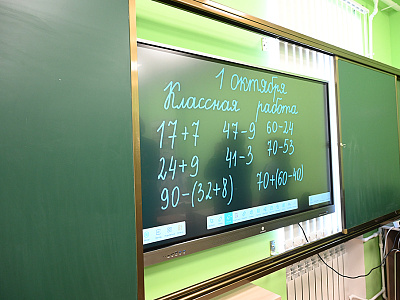 1 октября
Классная работа
17+7 47-9 60-24
24+9 41-3 70-53
90-(32+8) 70+(60-40)